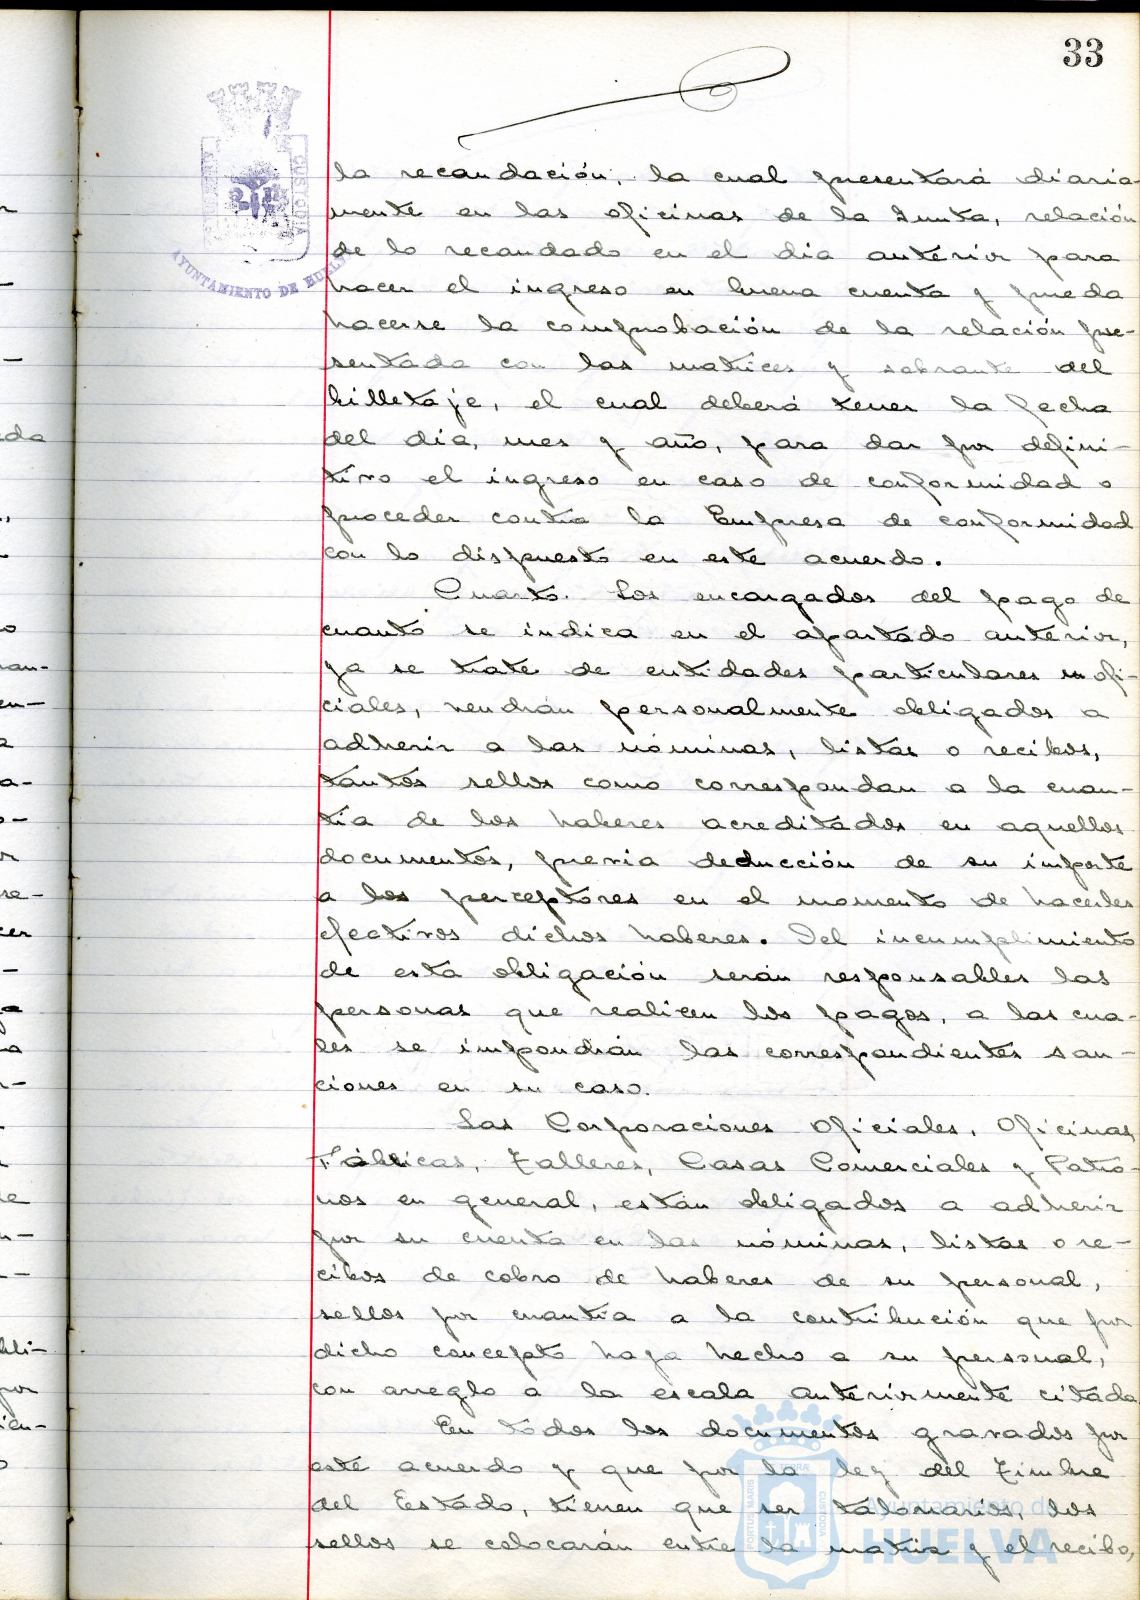 33
la recaudación, la cual presentará diaria-
mente en las oficinas de la Junta, relación
de lo recaudado en el día anterior para
hacer el ingreso en buena cuenta y pueda
hacerse la comprobación de la relación pre-
sentada con las matrices y sobrante del
billetaje, el cual deberá tener la fecha
del día, mes y año, para dar por defini-
tivo el ingreso en caso de conformidad o
proceder contra la Empresa de conformidad
con lo dispuesto en este acuerdo.
Cuarto. Los encargados del pago de
cuanto se indica en el apartado anterior,
ya se trate de entidades particulares u ofi-
ciales, vendrán personalmente obligados a
adherir a las nóminas, listas o recibos,
tantos sellos como correspondan a la cuan-
tía de los haberes acreditados en aquellos
documentos, previa deducción de su importe
a los perceptores en el momento de hacerles
efectivos dichos haberes. Del incumplimiento
de esta obligación serán responsables las
personas que realicen los pagos, a las cua-
les se impondrán las correspondientes san-
ciones en su caso.
Las Corporaciones Oficiales, Oficinas,
Fábricas, Talleres, Casas Comerciales y Patro-
nos en general, están obligados a adherir
por su cuenta en las nóminas, listas o re-
cibos de cobro de haberes de su personal,
sellos por cuantía a la contribución que por
dicho concepto haga hecho a su personal,
con arreglo a la escala anteriormente citada
En todos los documentos gravados por
este acuerdo y que por la ley del Timbre
del Estado, tienen que ser talonarios, los
sellos se colocarán entre la matriz y el recibo,
AYUNTAMIENTO DE HUELVA
CUSTODIA
PORTUS MARIS
TERRAE
CUSTODIA
Ayuntamiento de
HUELVA